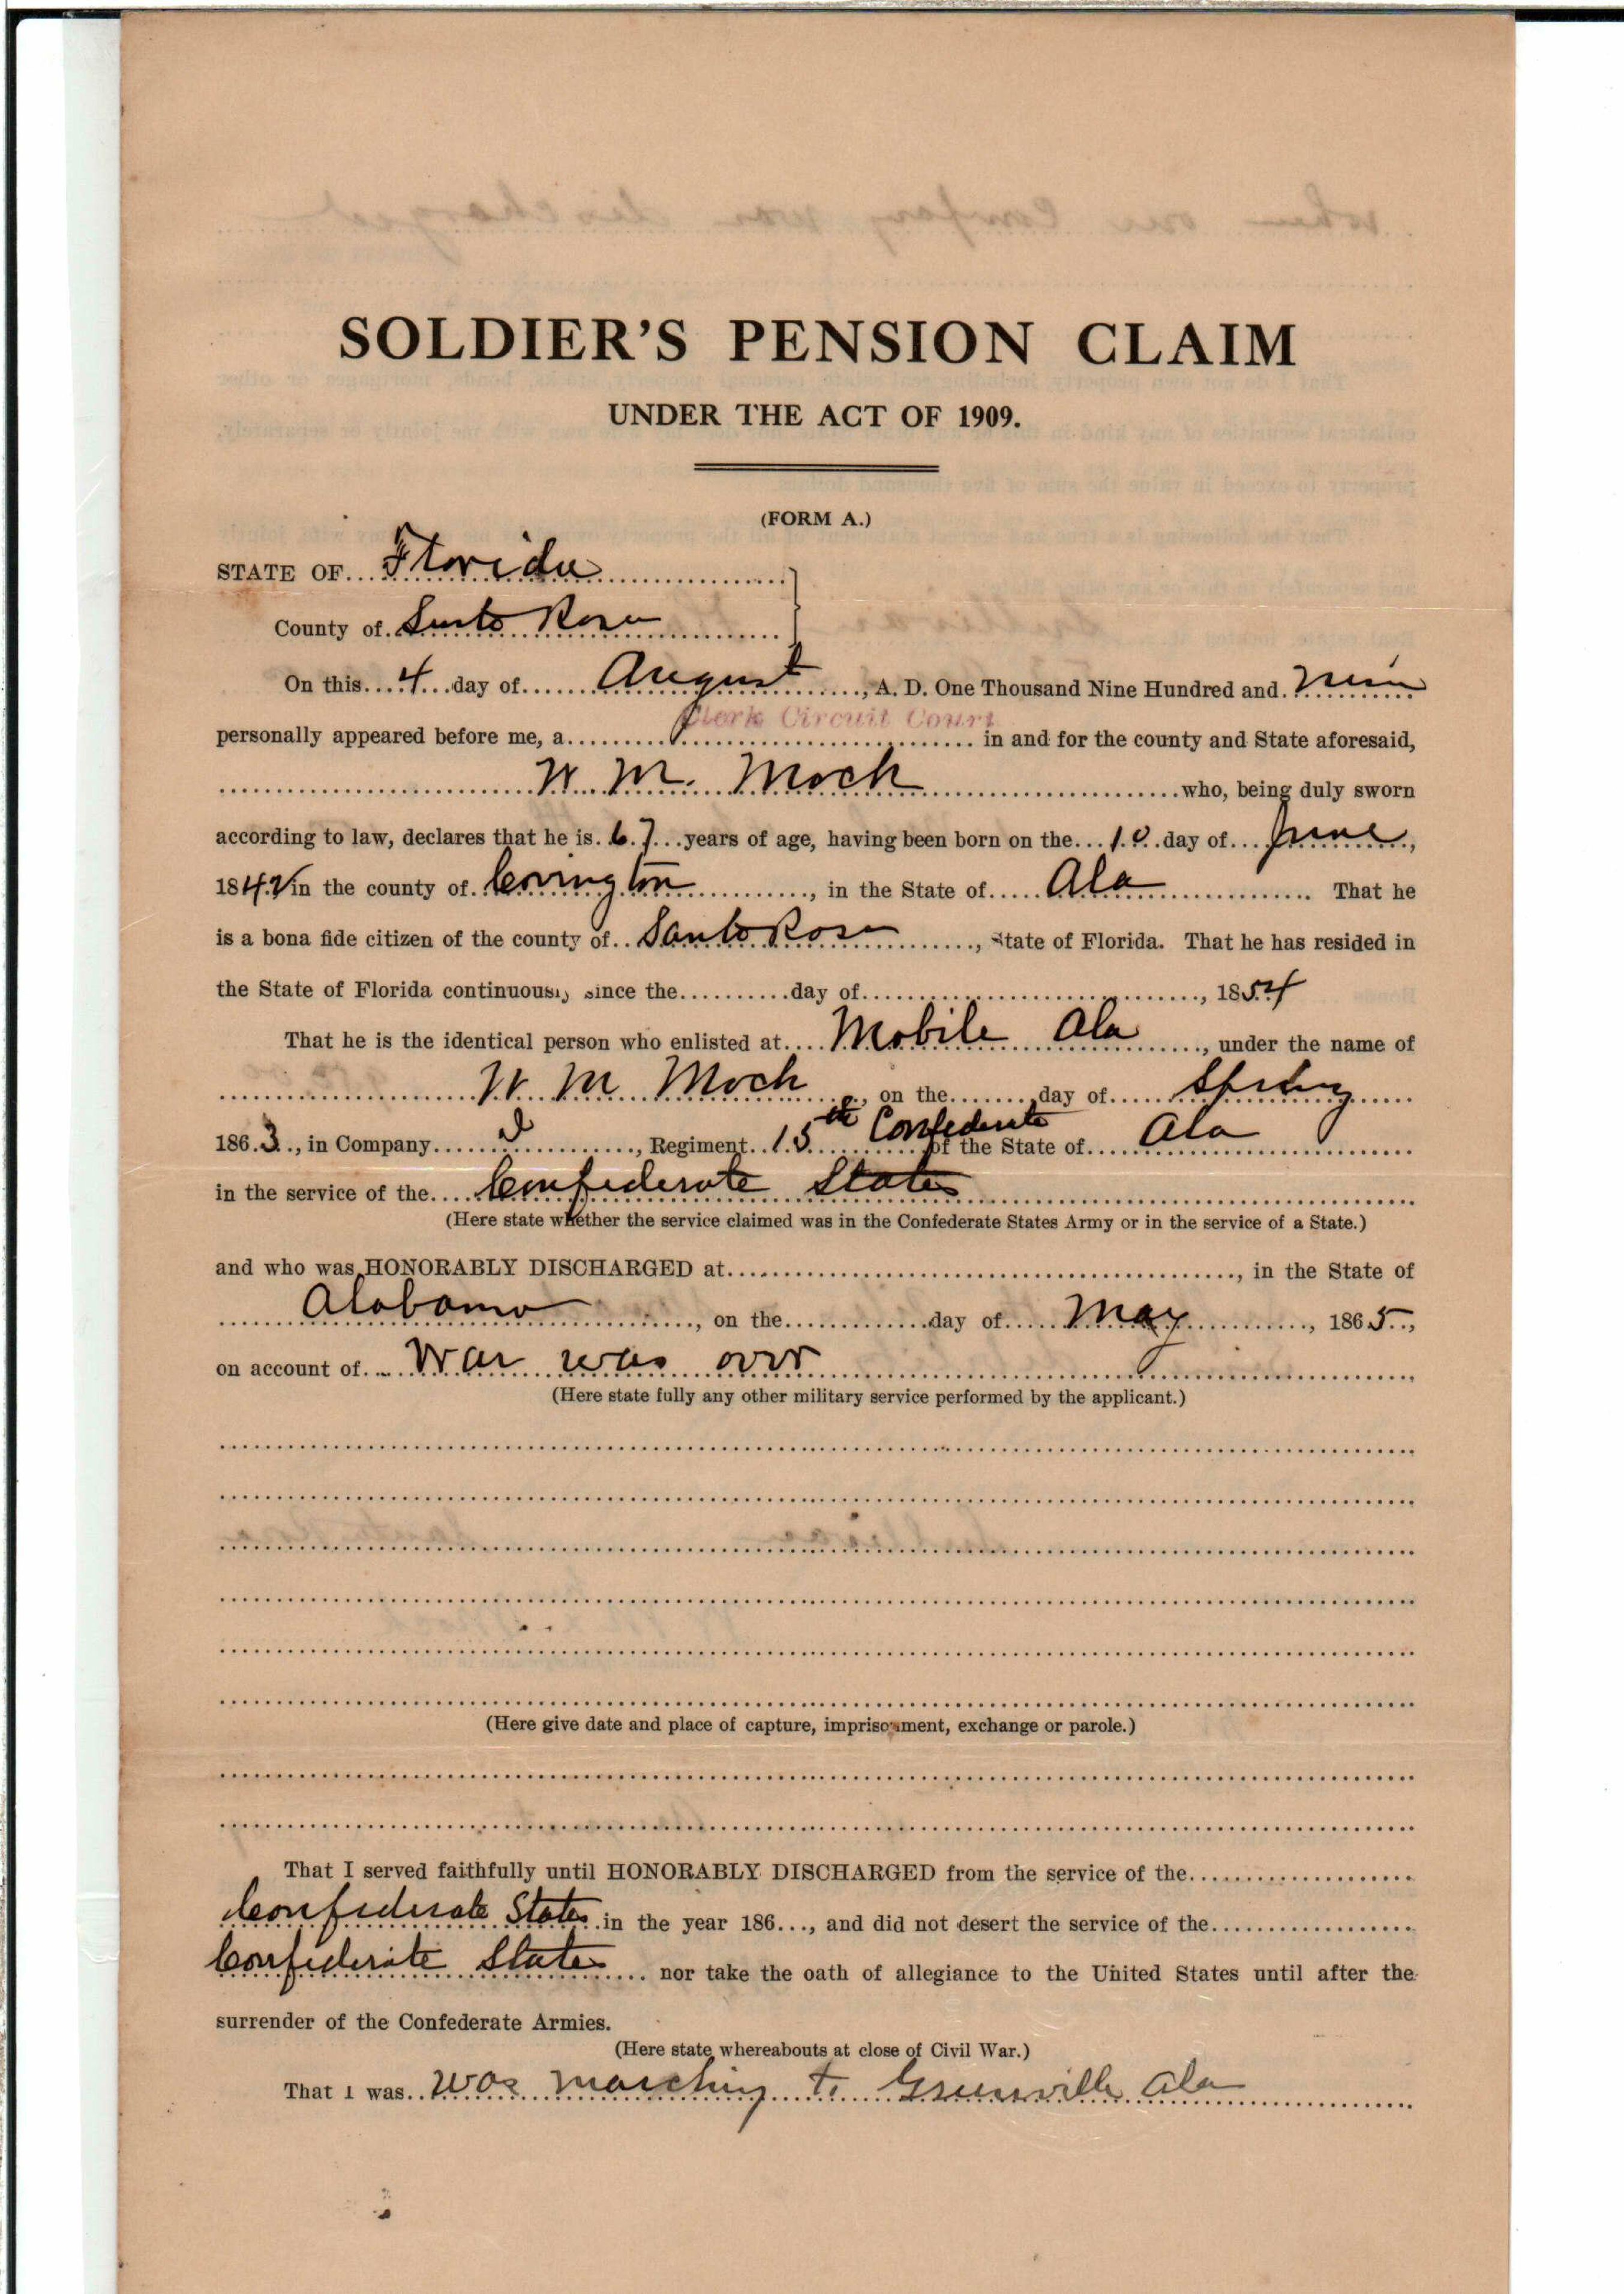 SOLDIER'S PENSION CLAIM
UNDER THE ACT OF 1909.
(FORM A.)
STATE OF Florida
County of Santa Rosa
On this 4 day of August, A. D. One Thousand Nine Hundred and Nine
Clerk Circuit Court
personally appeared before me, a in and for the county and State aforesaid,
W. M. Mock who, being duly sworn
according to law, declares that he is 67 years of age, having been born on the 10 day of June,
1842 in the county of Covington, in the State of Ala. That he
is a bona fide citizen of the county of Santa Rosa, State of Florida. That he has resided in
the State of Florida continuously since the day of, 1854
That he is the identical person who enlisted at Mobile Ala, under the name of
W M Mock, on the day of Spring
1863, in Company I, Regiment 15th Confederate of the State of Ala
in the service of the Confederate States
(Here state whether the service claimed was in the Confederate States Army or in the service of a State.)
and who was HONORABLY DISCHARGED at, in the State of
Alabama, on the day of May, 1865,
on account of War was over
(Here state fully any other military service performed by the applicant.)
(Here give date and place of capture, imprisonment, exchange or parole.)
That I served faithfully until HONORABLY DISCHARGED from the service of the
Confederate States in the year 186, and did not desert the service of the
Confederate States nor take the oath of allegiance to the United States until after the
surrender of the Confederate Armies.
(Here state whereabouts at close of Civil War.)
That I was was marching to Greenville Ala